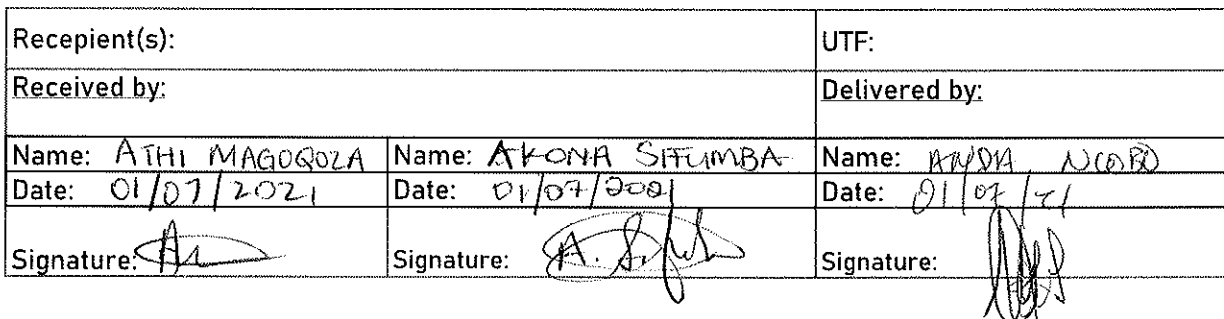 Recepient(s): UTF:
Received by: Delivered by:
Name: ATHI MAGOQOZA Name: AKONA SITUMBA Name: ANDA NCOBO
Date: 01/07/2021 Date: 01/07/2021 Date: 01/07/21
Signature: Signature: A. Signature: